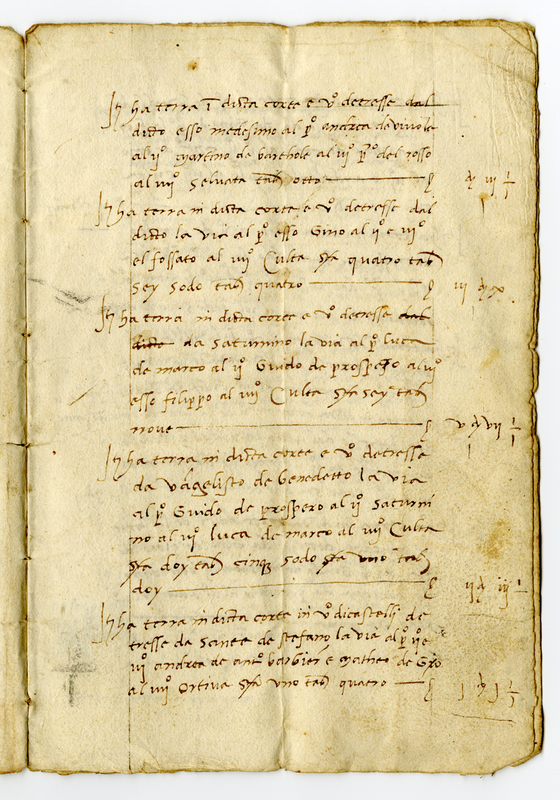 It ha terra ī dicta corte e vº detresse dal
dicto esso medesimo al pº andrea de vivola
al ijº martino de barthole al iijº pº del rosso
al iiijº Selvata tab otto £
It ha terra in dicta corte e vº detresse dal
dicto la via al pº esso Gino al ijº e iijº
el fossato al iiijº Culta sta quatro tab
Sey Sodo tab quatro £
It ha terra in dicta corte e vº detresse dal
dicto da Saturnino la via al pº luca
de marco al ijº Guido de prospero al iijº
esso filippo al iiijº Culta sta Sey tab
nove £
It ha terra in dicta corte e vº detresse
da vāgelisto de benedetto la via
al pº Guido de prospero al ijº Saturni
no al iijº luca de marco al iiijº Culta
sta doy tab cinqz Sodo sta uno tab
doy £
It ha terra in dicta corte in vº dicastelli de
tresse da Sante de stefano la via al pº ijº e
iijº andrea de antº barbieri e matheo de Gio
al iiijº Ortiva sta uno tab quatro £